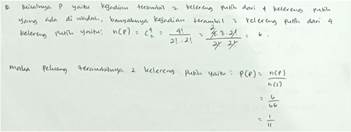 Misalnya P yaitu kejadian terambil 2 kelereng putih dari 4 kelereng putih
yang ada di wadah, banyaknya kejadian terambil 2 kelereng putih dari 4
kelereng putih yaitu: n(P) = C₂⁴ = 4! / 2! · 2! = 4·3·2! / 2! 2! = 6.
maka peluang terambilnya 2 kelereng putih yaitu: P(P) = n(P) / n(S)
= 6 / 66
= 1 / 11